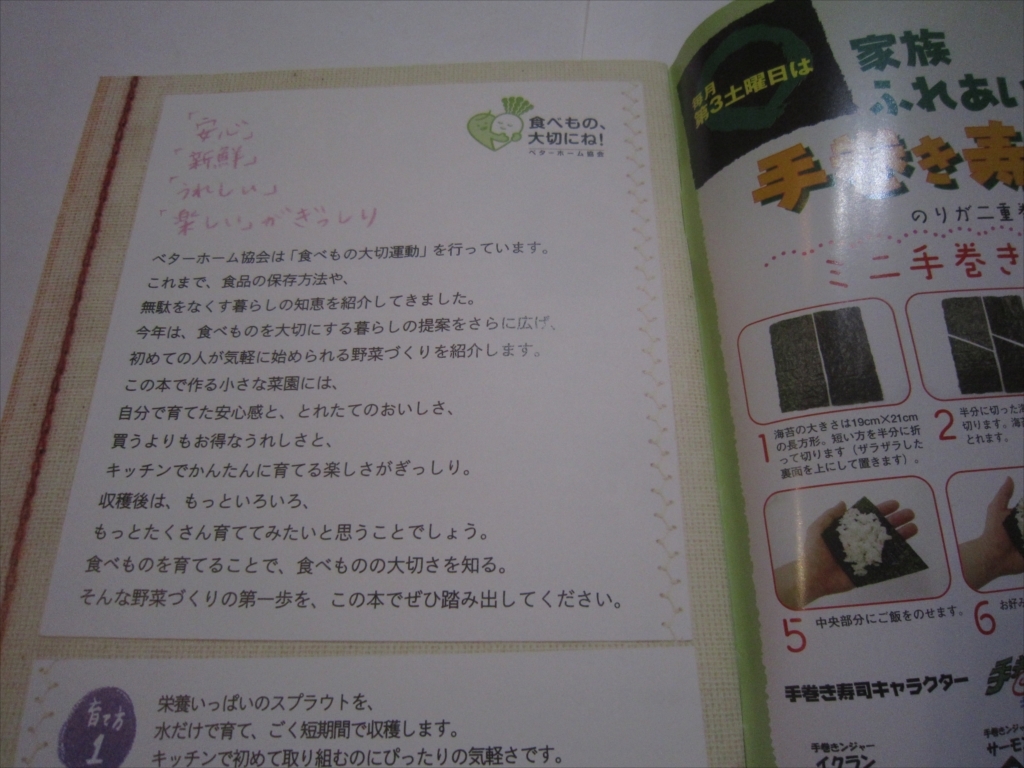 「安心」
「新鮮」
「うれしい」
「楽しい」がぎっしり
食べもの、
大切にね!
ベターホーム協会
ベターホーム協会は「食べもの大切運動」を行っています。
これまで、食品の保存方法や、
無駄をなくす暮らしの知恵を紹介してきました。
今年は、食べものを大切にする暮らしの提案をさらに広げ、
初めての人が気軽に始められる野菜づくりを紹介します。
この本で作る小さな菜園には、
自分で育てた安心感と、とれたてのおいしさ、
買うよりもお得なうれしさと、
キッチンでかんたんに育てる楽しさがぎっしり。
収穫後は、もっといろいろ、
もっとたくさん育ててみたいと思うことでしょう。
食べものを育てることで、食べものの大切さを知る。
そんな野菜づくりの第一歩を、この本でぜひ踏み出してください。
育て方
1
栄養いっぱいのスプラウトを、
水だけで育て、ごく短期間で収穫します。
キッチンで初めて取り組むのにぴったりの気軽さです。
毎月
第3土曜日は
家族
ふれあい
手巻き寿
のりが二重
ミニ手巻き
1 海苔の大きさは19cm×21cm
の長方形。短い方を半分に折
って切ります(ザラザラした
裏面を上にして置きます)。
2 半分に切った
切ります。
とれます。
5 中央部分にご飯をのせます。
6 お好み
手巻き寿司キャラクター
手巻
手巻きンジャー
イクラン
手巻きンジャー
サーモ